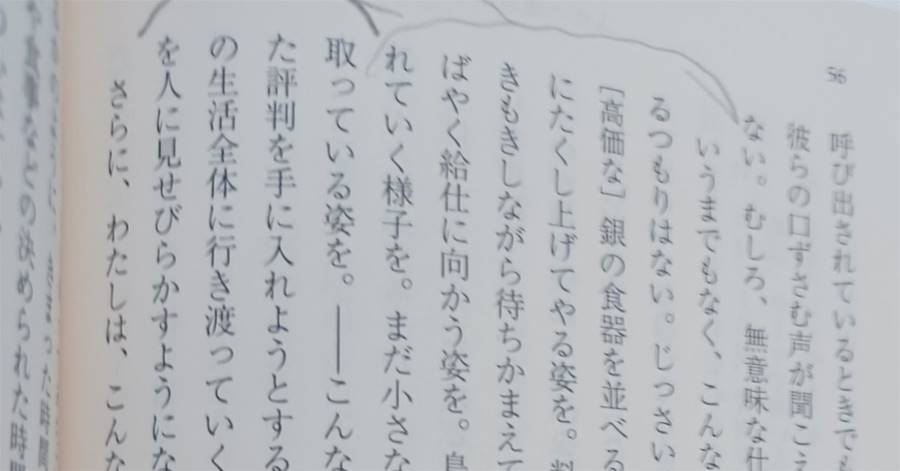 56
呼び出されているときでも
彼らの口ずさむ声が聞こえ
ない。むしろ、無意味な仕
いうまでもなく、こんな
るつもりはない。じっさい
［高価な］銀の食器を並べる
にたくし上げてやる姿を。料
きもきしながら待ちかまえて
ばやく給仕に向かう姿を。鳥
れていく様子を。まだ小さな
取っている姿を。――こんな
た評判を手に入れようとする
の生活全体に行き渡っていく
を人に見せびらかすようにな
さらに、わたしは、こんな
や食事などの決められた時間